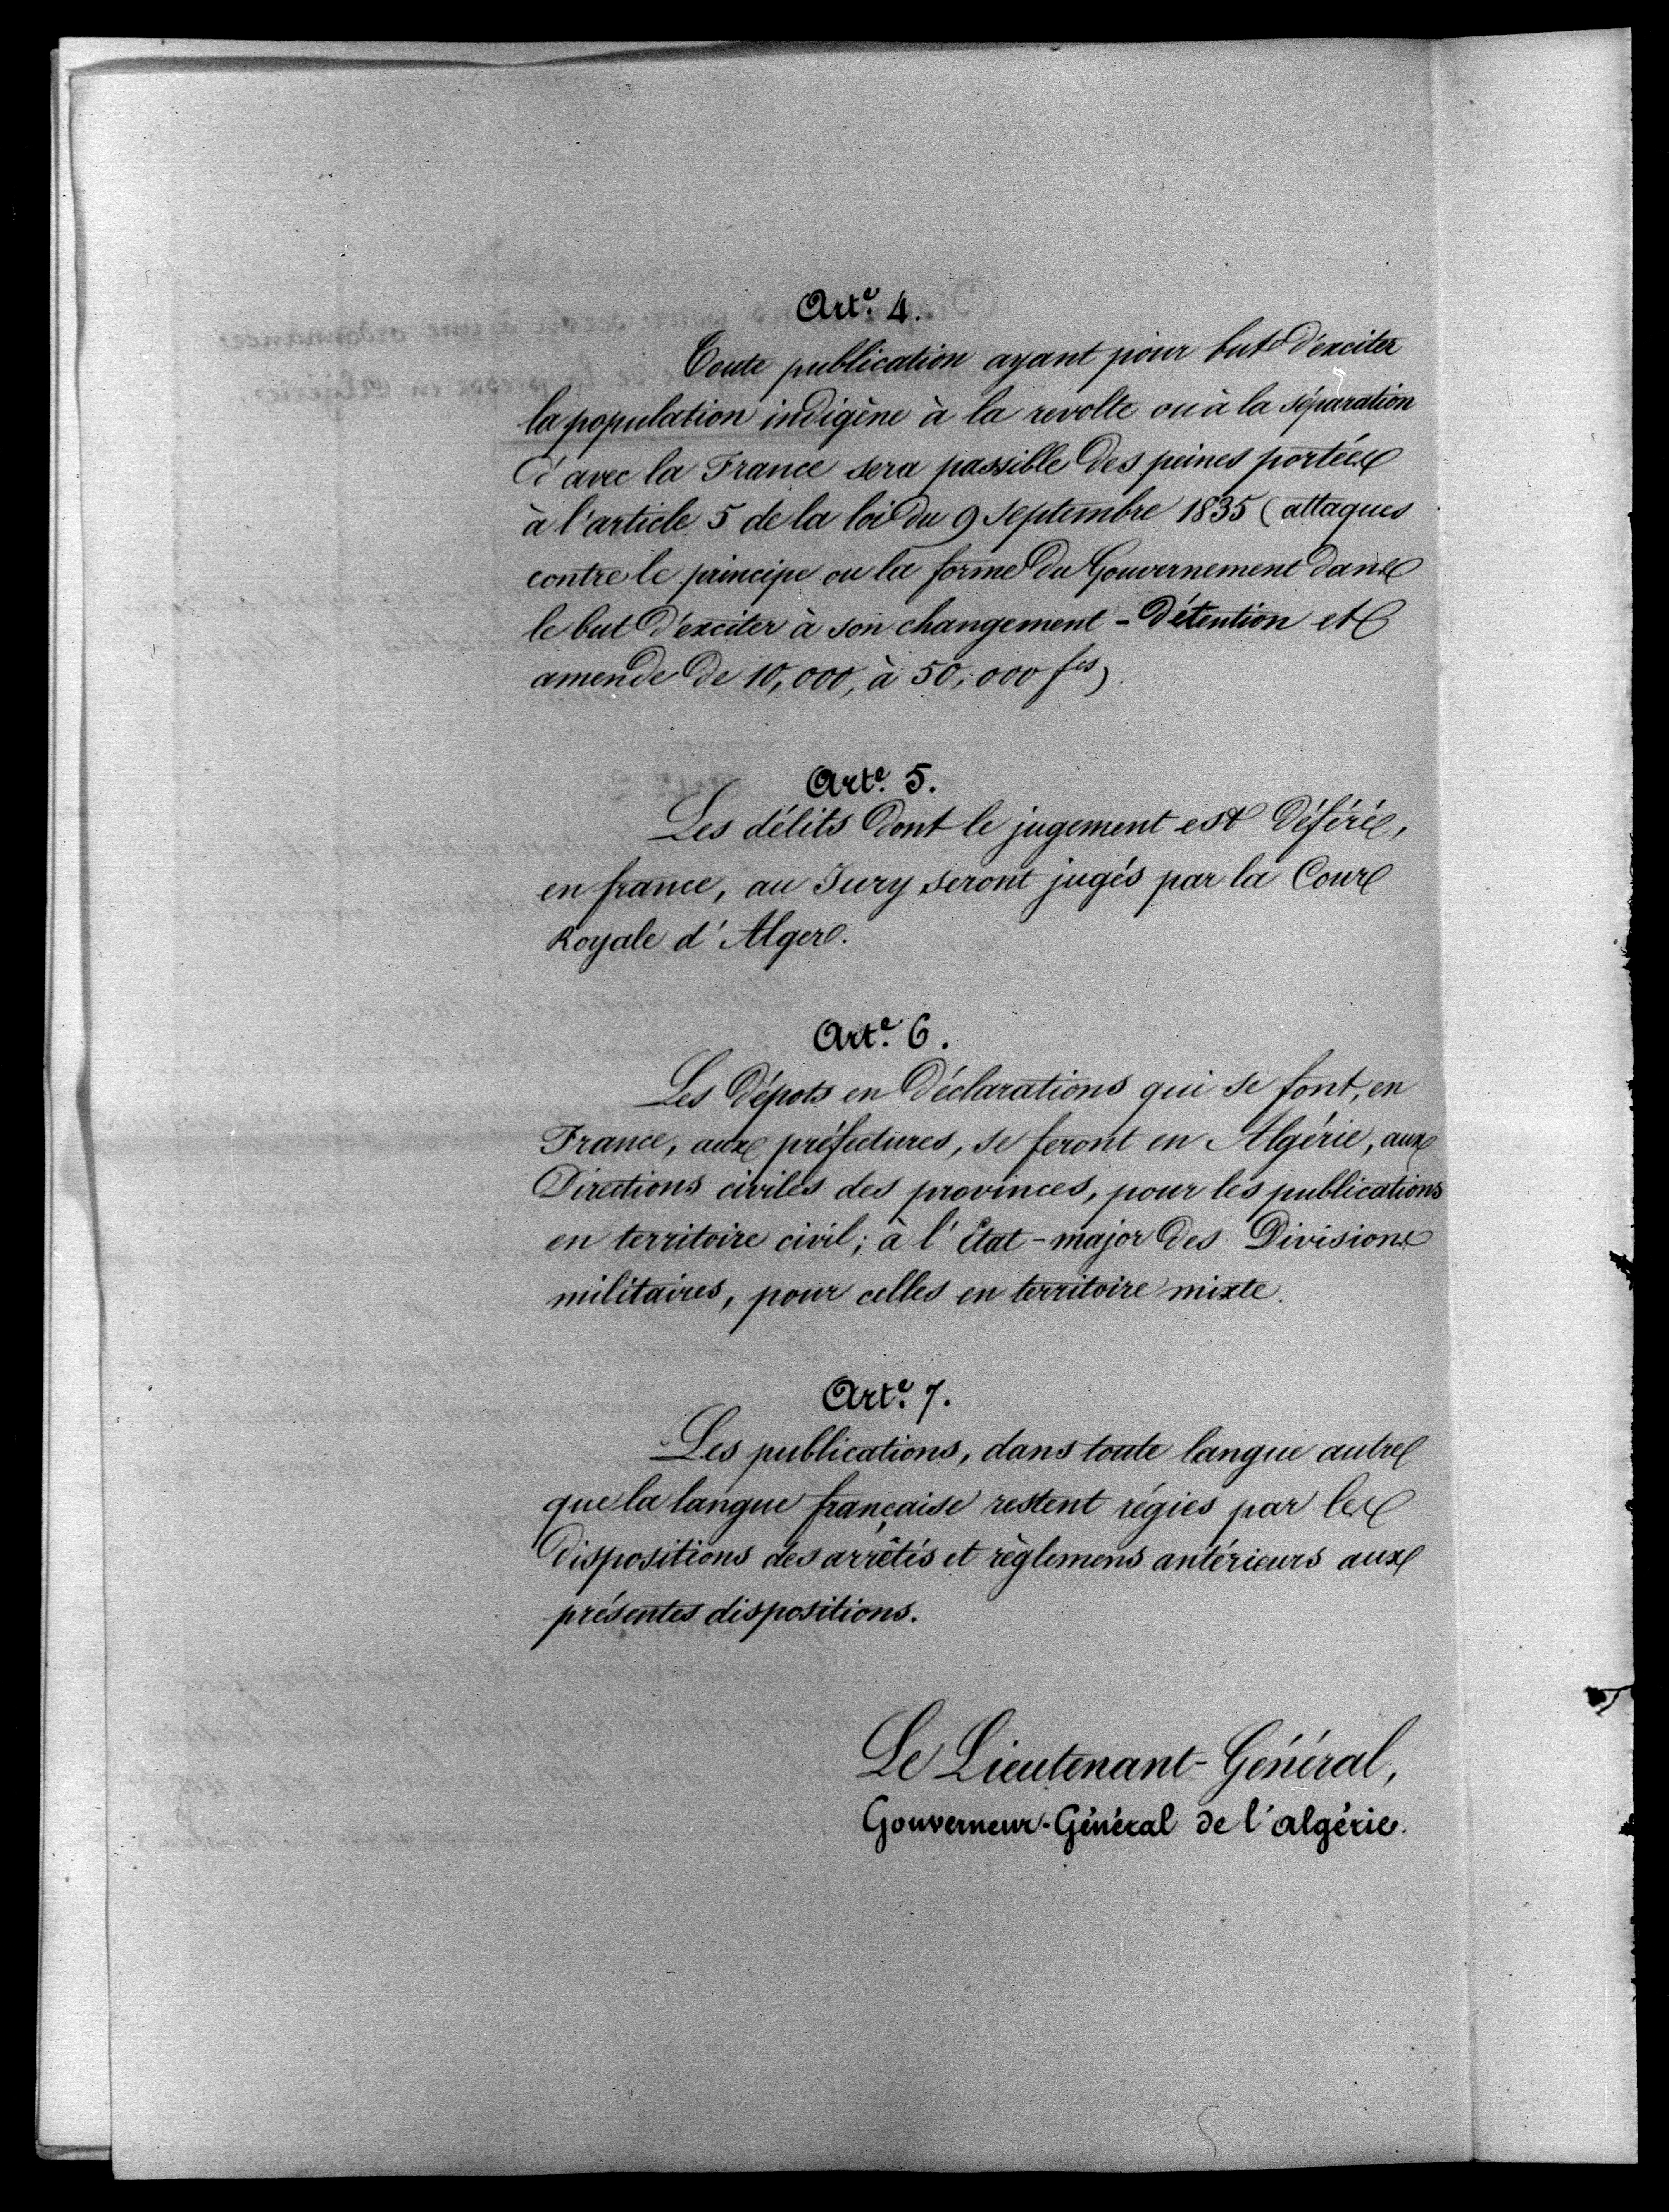 Art.e 4.
Toute publication ayant pour but d'exciter
la population indigène à la revolte ou à la séparation
d'avec la France sera passible des peines portées
à l'article 5 de la loi du 9 septembre 1835 (attaques
contre le principe ou la forme du Gouvernement dans
le but d'exciter à son changement - détention et
amende de 10,000, à 50,000 fcs)
Art.e 5.
Les délits dont le jugement est déféré,
en france, au Jury seront jugés par la Cour
Royale d'Alger.
Art.e 6.
Les dépots en déclarations qui se font, en
France, aux préfectures, se feront en Algérie, aux
Directions civiles des provinces, pour les publications
en territoire civil; à l'État-major des Divisions
militaires, pour celles en territoire mixte.
Art.e 7.
Les publications, dans toute langue autre
que la langue française restent régies par les
dispositions des arrêtés et règlemens antérieurs aux
présentes dispositions.
Le Lieutenant-Général,
Gouverneur-Général de l'algérie.